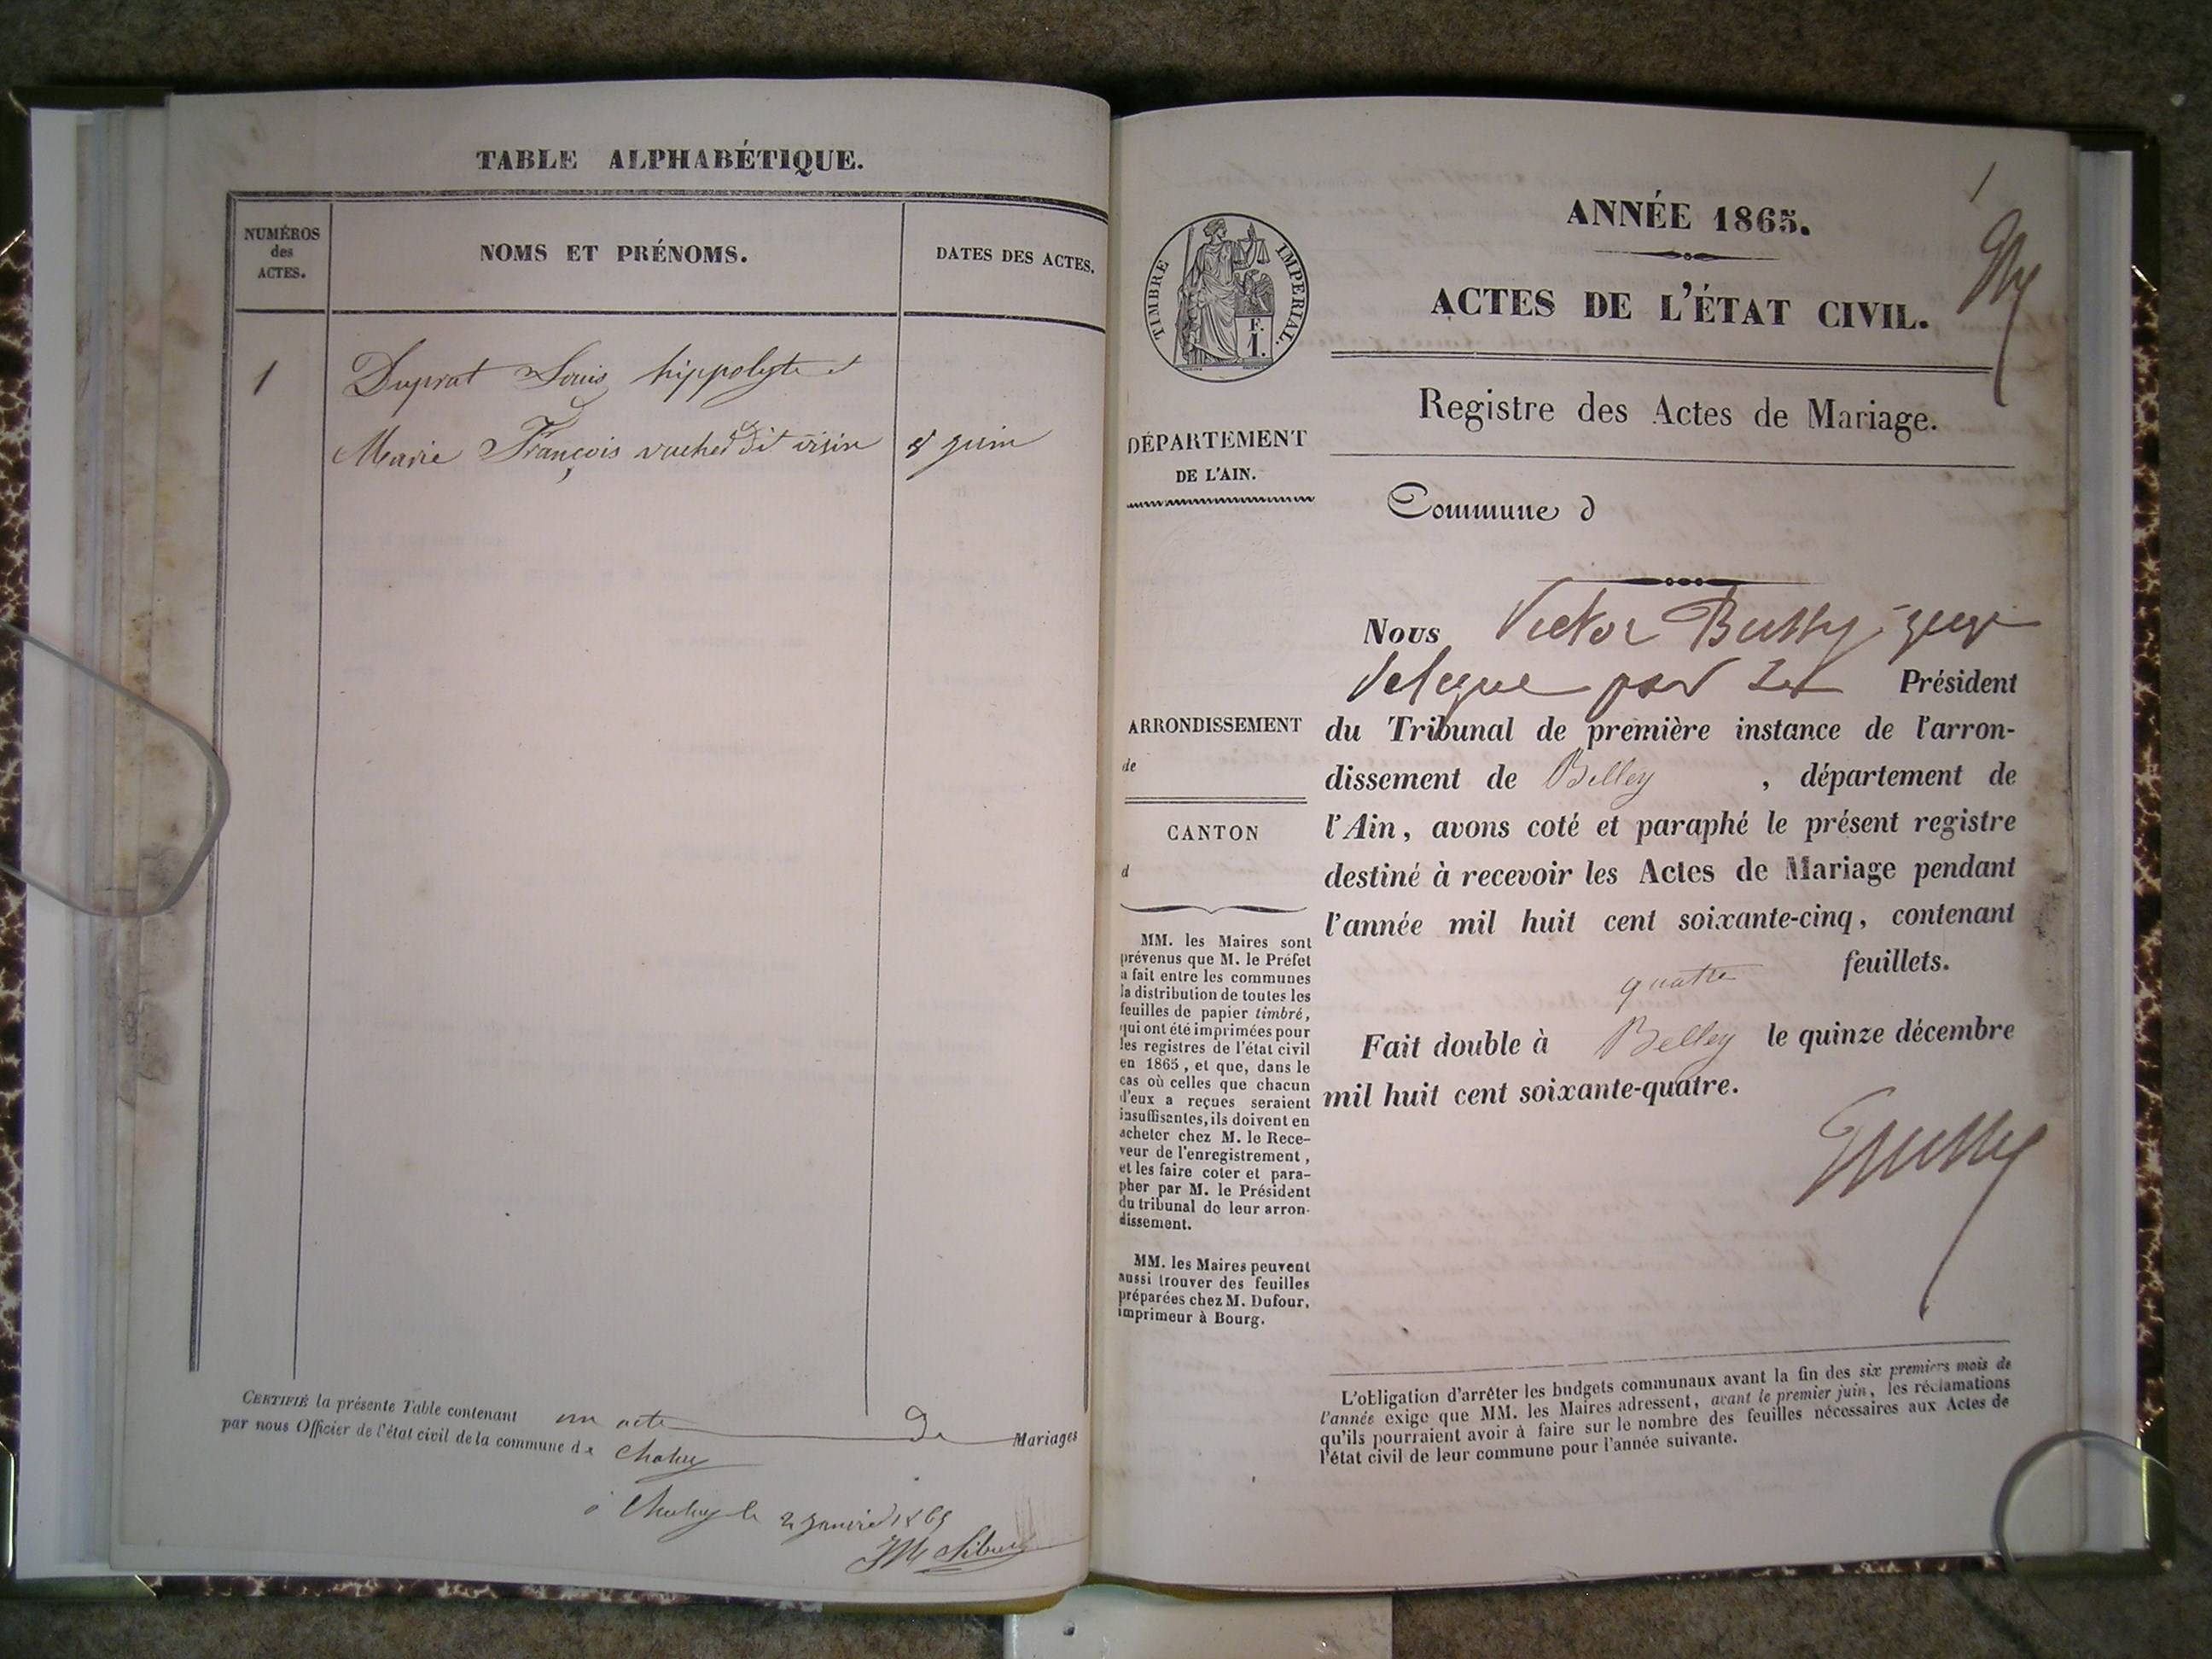 TABLE ALPHABÉTIQUE.
NUMÉROS
des
ACTES.
NOMS ET PRÉNOMS.
DATES DES ACTES.
1
Duprat Louis hippolyte et
Marie François vacher dit visin
8 juin
CERTIFIÉ la présente Table contenant un acte De Mariages
par nous Officier de l'état civil de la commune de Chaley
à Chaley le 2 janvier 1865
1
TIMBRE IMPERIAL.
F.
1.
DÉPARTEMENT
DE L'AIN.
ARRONDISSEMENT
de
CANTON
d
MM. les Maires sont
prévenus que M. le Préfet
a fait entre les communes
la distribution de toutes les
feuilles de papier timbré,
qui ont été imprimées pour
les registres de l'état civil
en 1865, et que, dans le
cas où celles que chacun
d'eux a reçues seraient
insuffisantes, ils doivent en
acheter chez M. le Rece-
veur de l'enregistrement,
et les faire coter et para-
pher par M. le Président
du tribunal de leur arron-
dissement.
MM. les Maires peuvent
aussi trouver des feuilles
préparées chez M. Dufour,
imprimeur à Bourg.
ANNÉE 1865.
ACTES DE L'ÉTAT CIVIL.
Registre des Actes de Mariage.
Commune d
Nous Victor Bussy juge
delegue par Le Président
du Tribunal de première instance de l'arron-
dissement de Belley , département de
l'Ain, avons coté et paraphé le présent registre
destiné à recevoir les Actes de Mariage pendant
l'année mil huit cent soixante-cinq, contenant
quatre feuillets.
Fait double à Belley le quinze décembre
mil huit cent soixante-quatre.
Bussy
L'obligation d'arrêter les budgets communaux avant la fin des six premiers mois de
l'année exige que MM. les Maires adressent, avant le premier juin, les réclamations
qu'ils pourraient avoir à faire sur le nombre des feuilles nécessaires aux Actes de
l'état civil de leur commune pour l'année suivante.